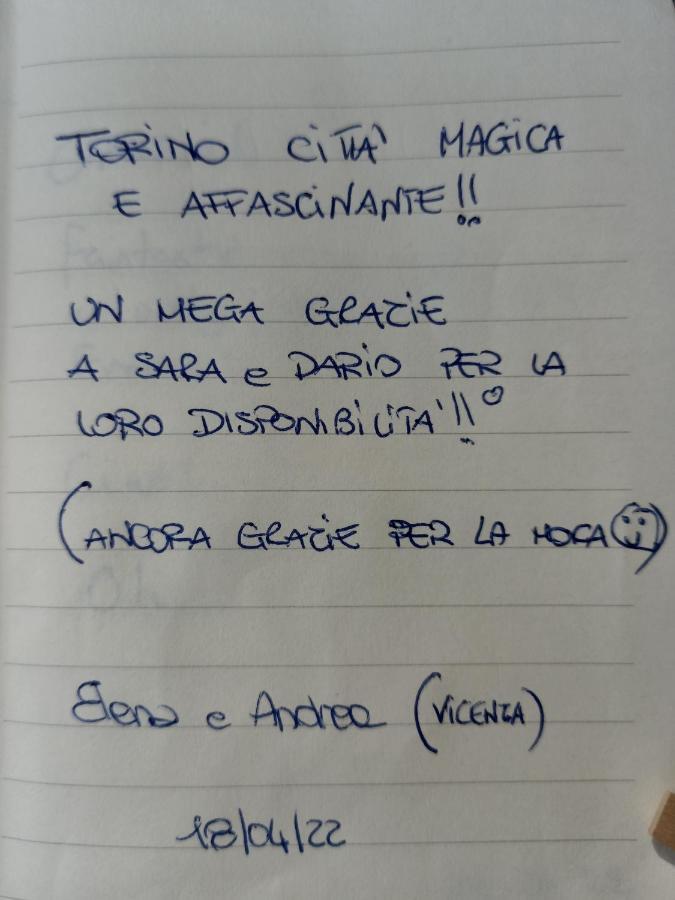 TORINO CITTA' MAGICA
E AFFASCINANTE!!
UN MEGA GRAZIE
A SARA e DARIO PER LA
LORO DISPONIBILITA'!!
(ANCORA GRAZIE PER LA MOCA)
Elena e Andrea (VICENZA)
18/04/22